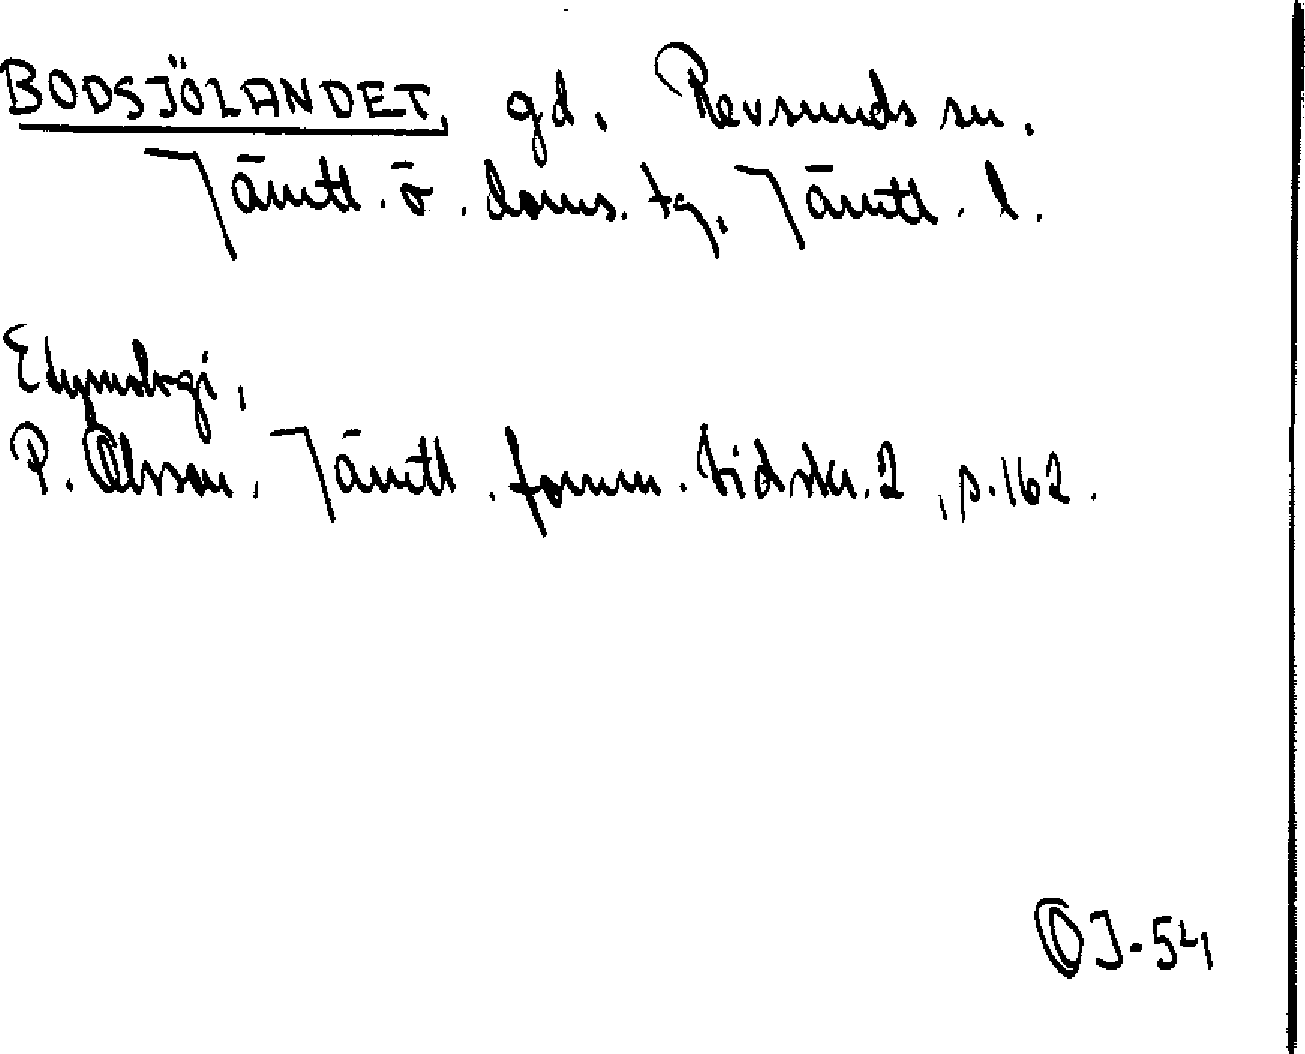 BODSJÖLANDET, gd. Revsunds sn.
Jämtl. ö. doms. tg, Jämtl. l.
Etymologi,
P. Olsson, Jämtl. fornm. tidskr. 2, s. 162.
OJ-54